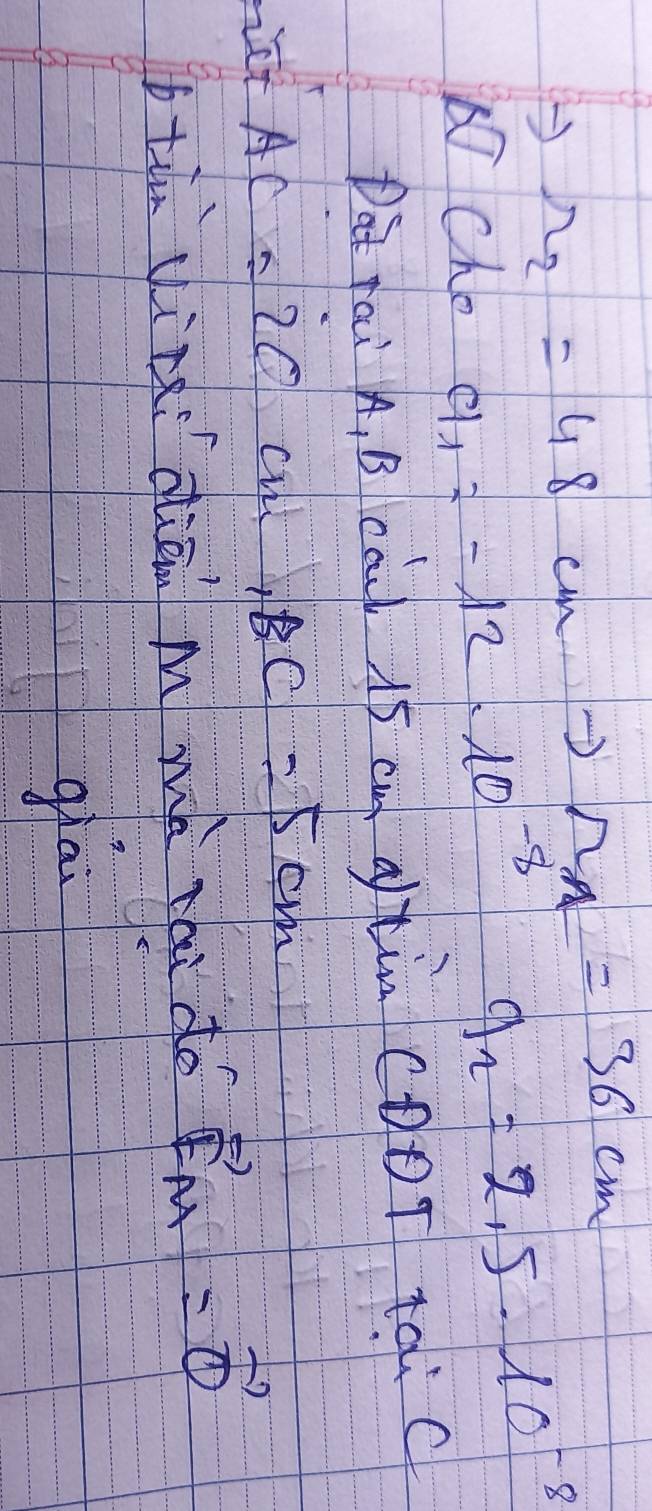 → r₂ = 48 cm → r₁ = 36 cm
BT Cho q₁ = -12.10⁻⁸ q₂ = 2,5.10⁻⁸
Đặt tại A, B cách 15 cm a) tìm CĐĐT tại C
biết AC = 20 cm, BC = 5 cm
b tìm vị trí điểm M mà tại đó E⃗M = 0⃗
giải